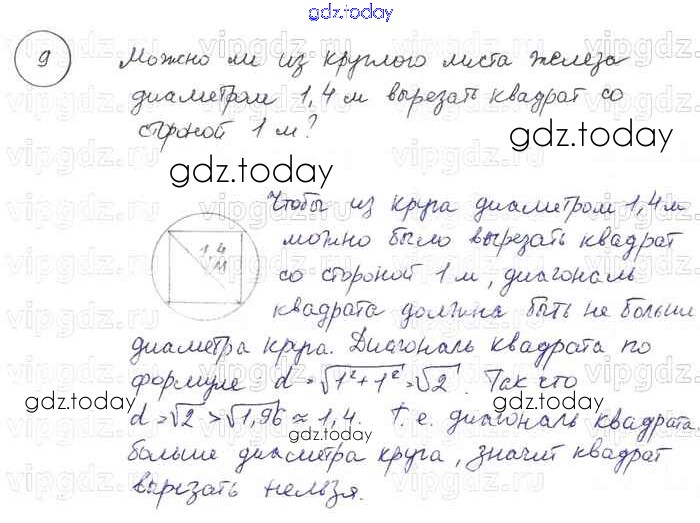 gdz.today
9 Можно ли из круглого листа железа
диаметром 1,4 м вырезать квадрат со
стороной 1 м?
gdz.today
gdz.today
Чтобы из круга диаметром 1,4 м
можно было вырезать квадрат
1,4 м
со стороной 1 м, диагональ
квадрата должна быть не больше
диаметра круга. Диагональ квадрата по
формуле d = √1²+1² = √2. Так что
d = √2 > √1,96 ≈ 1,4. Т.е. диагональ квадрата
gdz.today
gdz.today
gdz.today
больше диаметра круга, значит квадрат
вырезать нельзя.
vipgdz.ru